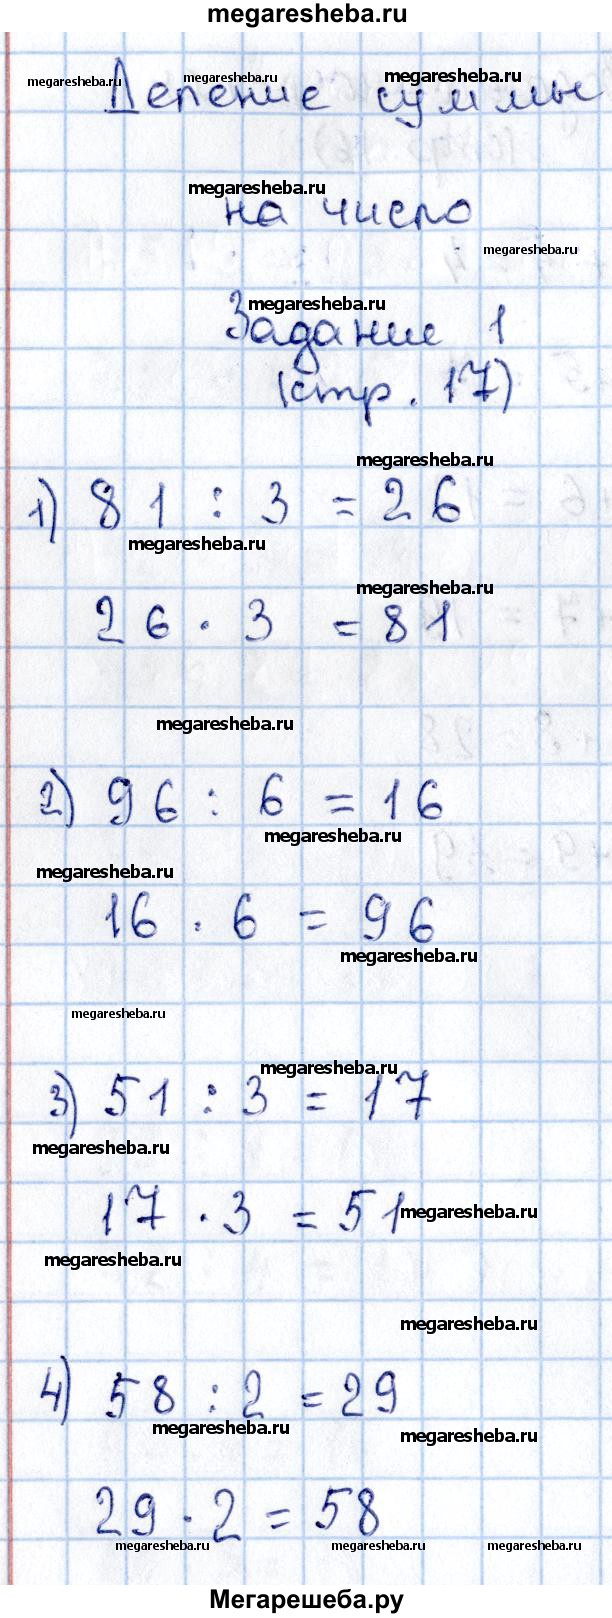 megaresheba.ru
megaresheba.ru megaresheba.ru megaresheba.ru
Деление суммы
megaresheba.ru
на число
megaresheba.ru
megaresheba.ru
Задание 1
(стр. 17)
megaresheba.ru
1) 81 : 3 = 26
megaresheba.ru
megaresheba.ru
26 · 3 = 81
megaresheba.ru
2) 96 : 6 = 16
megaresheba.ru
megaresheba.ru
16 · 6 = 96
megaresheba.ru
megaresheba.ru
megaresheba.ru
3) 51 : 3 = 17
megaresheba.ru
17 · 3 = 51
megaresheba.ru
megaresheba.ru
megaresheba.ru
4) 58 : 2 = 29
megaresheba.ru
megaresheba.ru
29 · 2 = 58
megaresheba.ru megaresheba.ru megaresheba.ru
Мегарешеба.ру